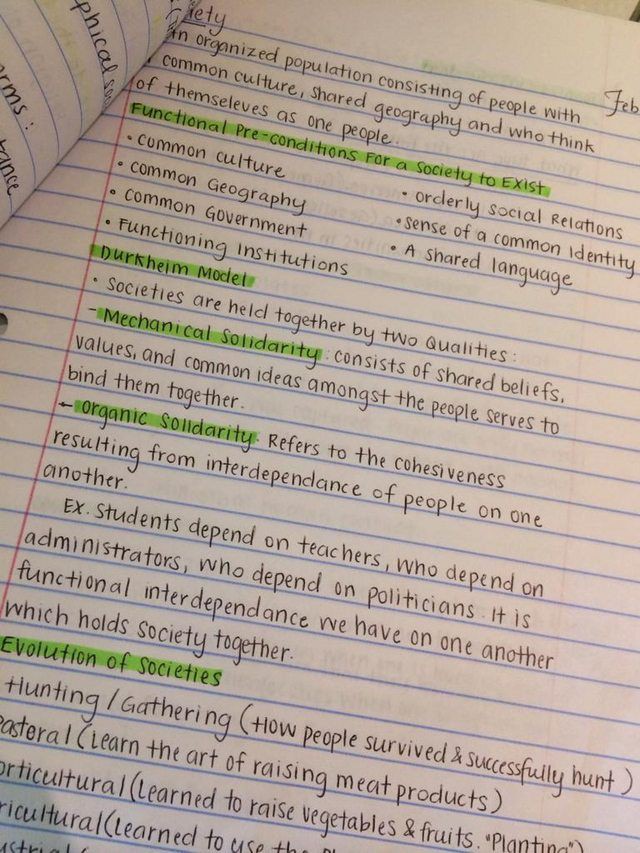 phical
orms:
tance
iety
Feb
an organized population consisting of people with
common culture, shared geography and who think
of themseleves as one people.
Functional Pre-conditions For a Society to Exist
• common culture
• common Geography
• common Government
• Functioning Institutions
• orderly social Relations
• sense of a common Identity
• A shared language
Durkheim Model
• Societies are held together by two Qualities:
- Mechanical Solidarity: consists of shared beliefs,
values, and common ideas amongst the people serves to
bind them together.
- organic Solidarity: Refers to the cohesiveness
resulting from interdependance of people on one
another.
Ex. Students depend on teachers, who depend on
administrators, who depend on politicians. It is
functional interdependance we have on one another
which holds society together.
Evolution of Societies
Hunting / Gathering (How people survived & successfully hunt)
Pastoral (Learn the art of raising meat products)
orticultural (Learned to raise vegetables & fruits. "Planting")
ricultural (Learned to use the
ustrial